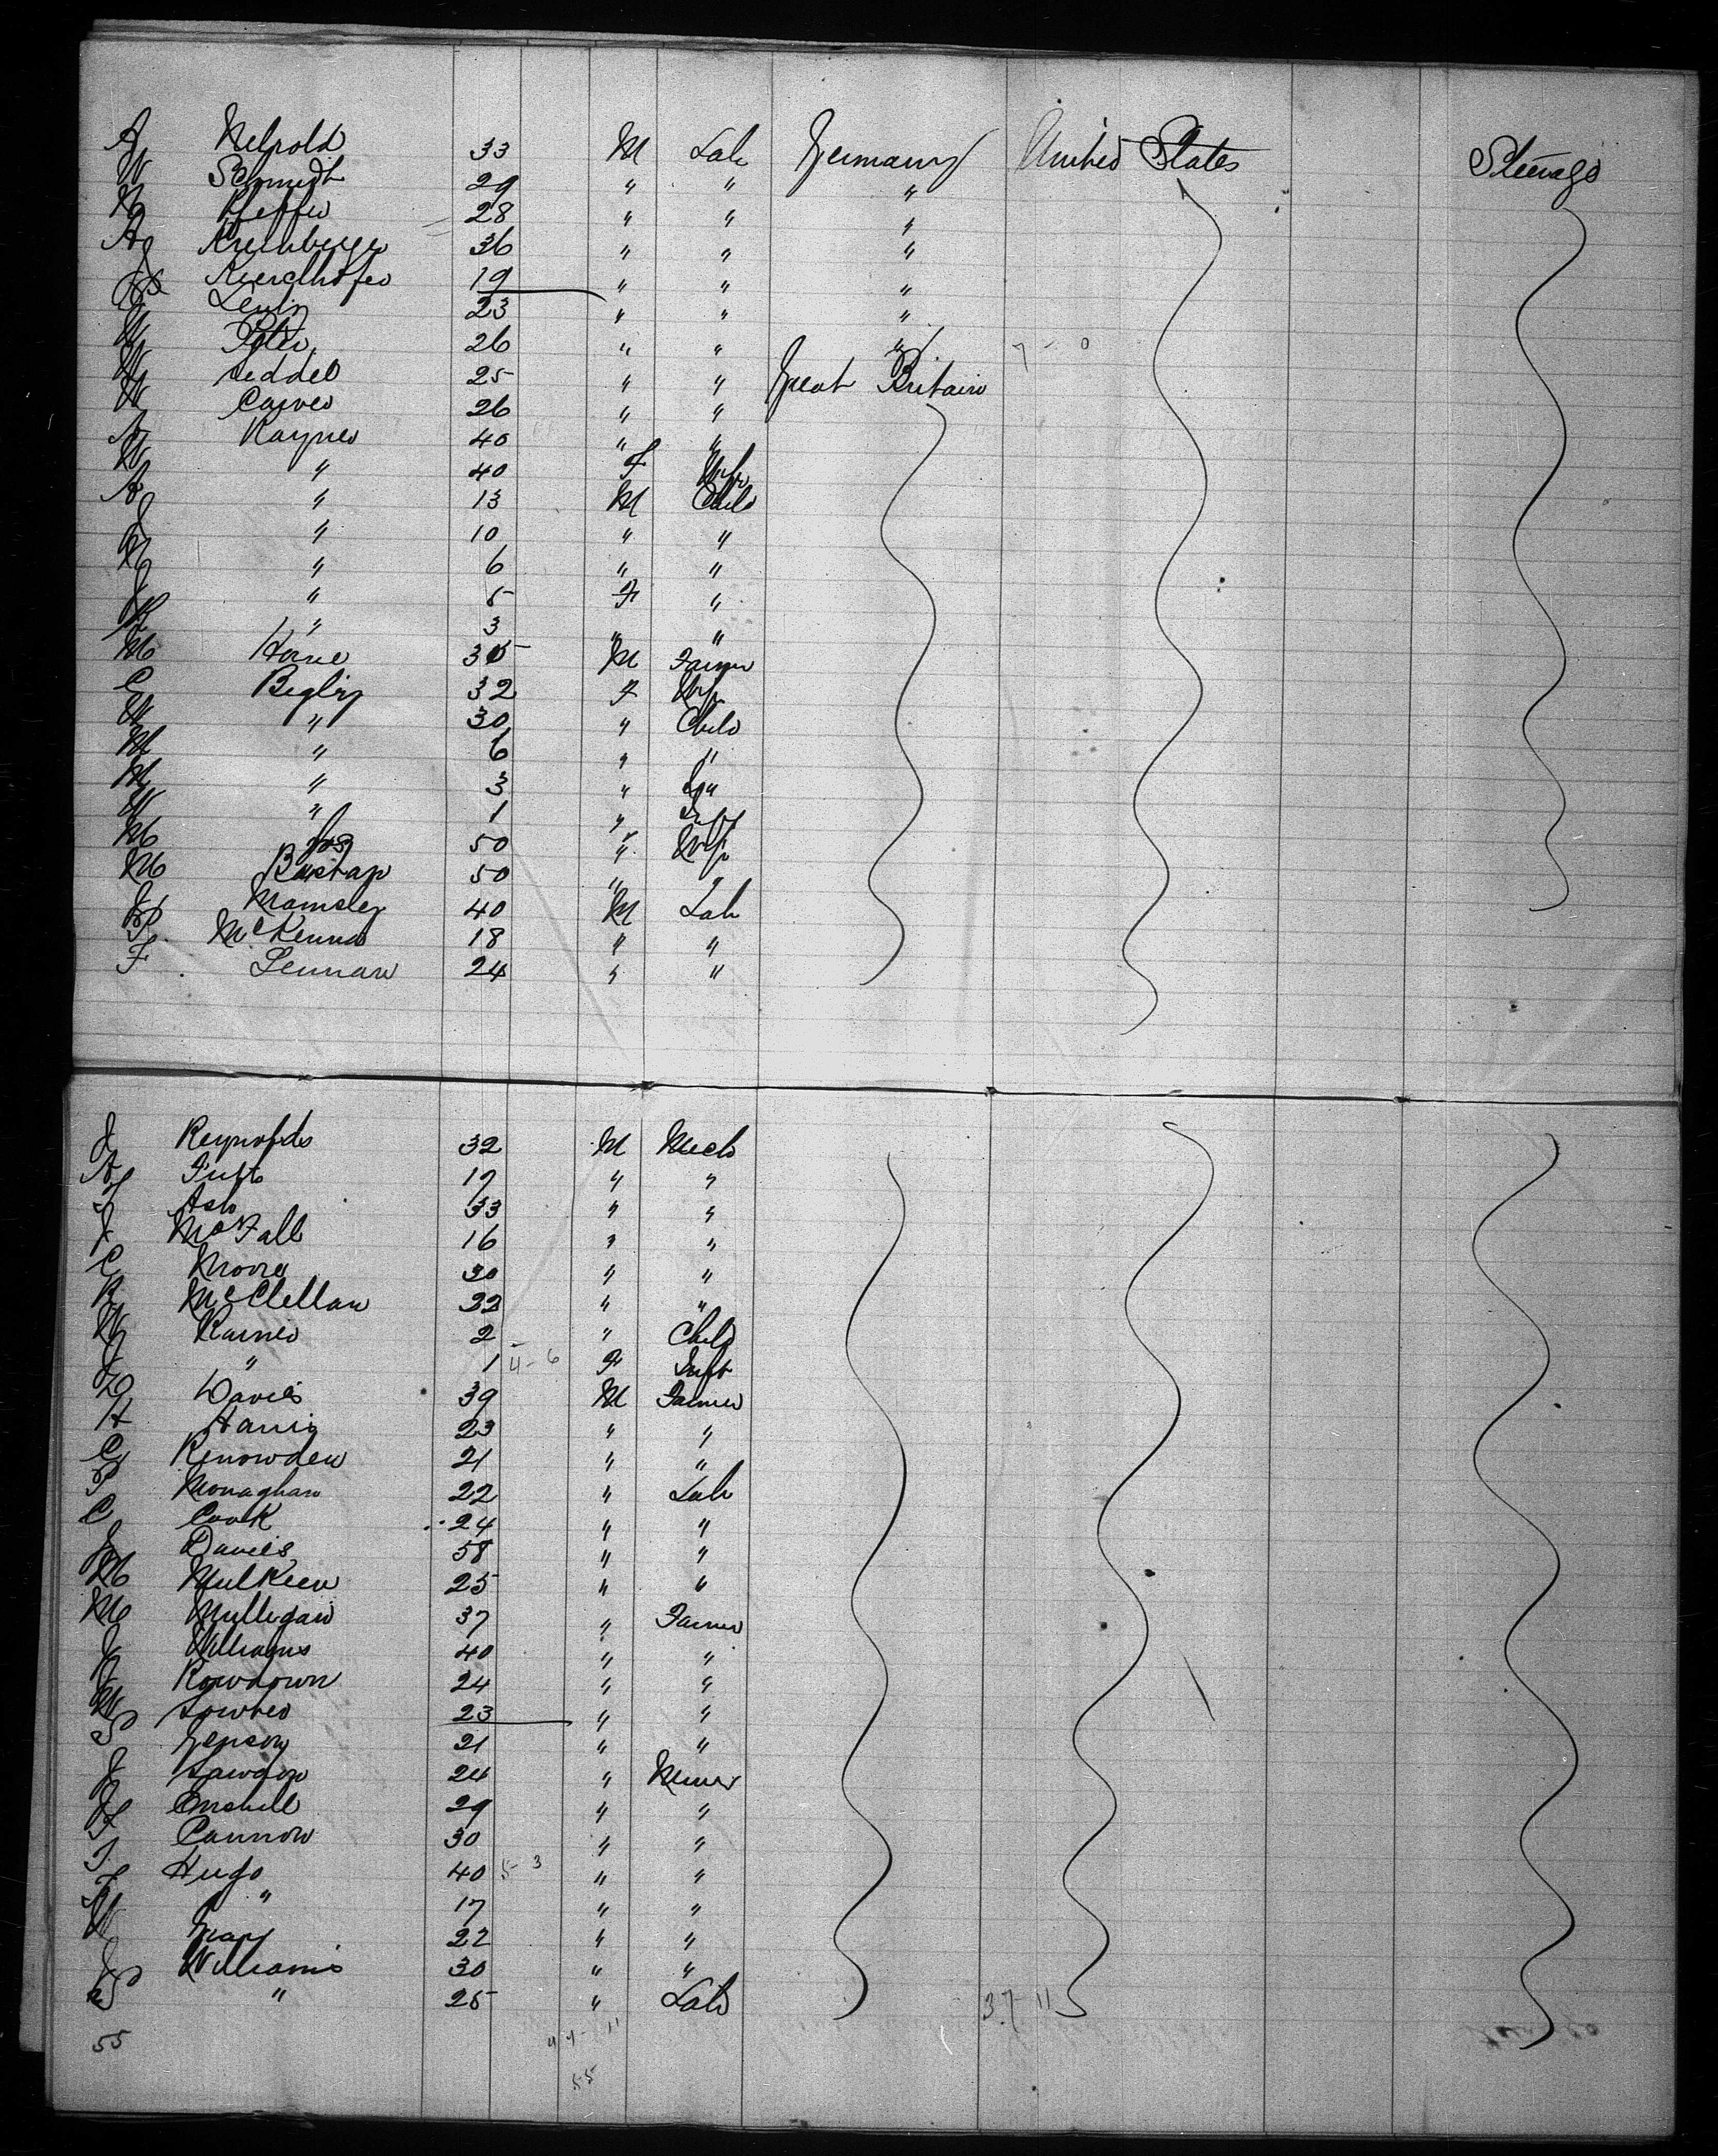 A Nelpold 33 M Lab Germany United States Steerage
W Schmidt 29 " " "
Pfeffer 28 " " "
A 36 " " "
J 19 " " "
Levin 23 " " "
26 " " " 7 - 0
W Seddel 25 " " Great Britain
W Carver 26 " "
A Rayner 40 " "
W " 40 F Wife
A " 13 M Child
J " 10 " "
" 6 " "
J " 5 F "
R " 3 " "
M Horne 35 M Farmer
C Begley 32 F Wife
W " 30 " Child
M " 6 " "
M " 3 "
W " 1 " Inft
M Joy 50 " Wife
M Bastap 50 " "
J Mamsley 40 M Lab
P McKenna 18 " "
F Lennan 24 " "
J Reynolds 32 M Mech
A Tuft 17 " "
T Ash 33 " "
J McFall 16 " "
C Moore 30 " "
R McClellan 22 " "
W Rainer 2 " Child
J " 1 4-6 F Inft
D Davies 39 M Farmer
H Harris 23 " "
C Renowden 21 " "
P Monaghan 22 " Lab
C Cook 24 " "
J Davies 58 " "
M Mulkeen 25 " "
M Mulligan 37 " Farmer
J Williams 40 " "
J Rowdown 24 " "
W Lowther 23 " "
S Jepson 21 " "
J Lawson 24 " Miner
J 29 " "
F Cannon 30 " "
T Hugo 40 5 3 " "
F " 17 " "
W Gray 22 " "
J Williams 30 " "
S " 25 " Lab 37 11
55 44 - 11
55